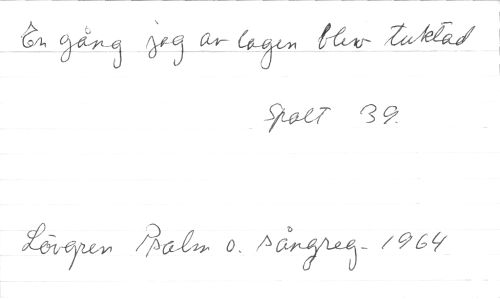 En gång jag av lagen blev tuktad
Spalt 39.
Lövgren Psalm o. sångreg. 1964